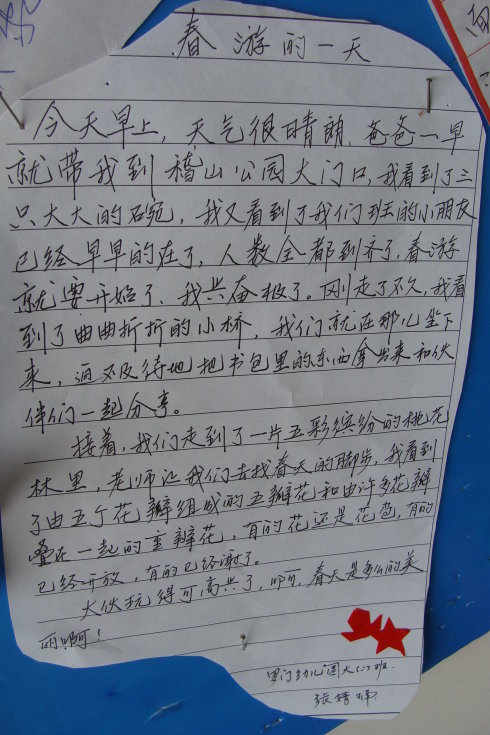 春游的一天
今天早上，天气很晴朗，爸爸一早
就带我到稽山公园大门口，我看到了三
只大大的碗，我又看到了我们班的小朋友
已经早早的在了，人数全都到齐了，春游
就要开始了，我兴奋极了。刚走了不久，我看
到了曲曲折折的小桥，我们就在那儿坐下
来，迫不及待地把书包里的东西拿出来和伙
伴们一起分享。
接着，我们走到了一片五彩缤纷的桃花
林里，老师让我们去找春天的脚步，我看到
了由五个花瓣组成的五瓣花和由许多花瓣
叠在一起的重瓣花，有的花还是花苞，有的
已经开放，有的已经谢了。
大伙玩得可高兴了，啊，春天是多么的美
丽啊！
幼儿园大(二)班.